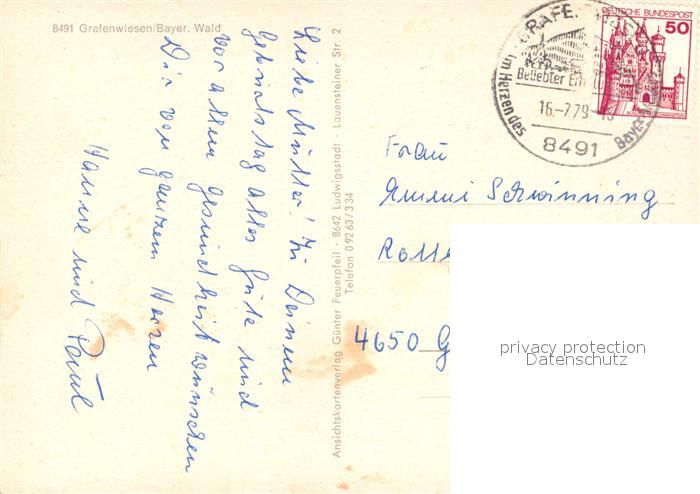 8491 Grafenwiesen/Bayer. Wald
Liebe Mutter! Zu Deinem
Geburtstag alles Gute und
vor allem Gesundheit wünschen
Dir von ganzem Herzen
Hanne und Paul
Ansichtskartenverlag Günter Feuerpfeil · 8642 Ludwigsstadt · Lauensteiner Str. 2
Telefon 0 92 63/334
DEUTSCHE BUNDESPOST
50
GRAFE
Beliebter
im Herzen des
16.-7.79
8491
Bayer
Frau
Schwinning
4650 G
privacy protection
Datenschutz